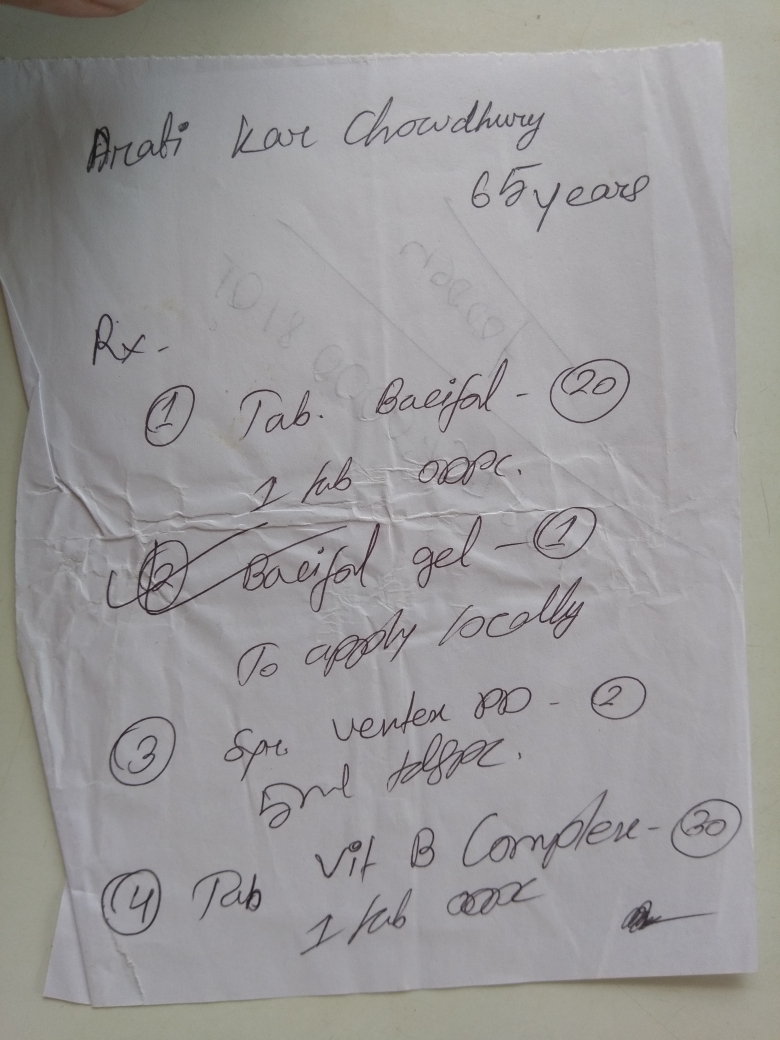 Arati Kar Chowdhury
65 years
Rx-
① Tab. Bacifal - ⑳
1 tab ODPC.
② Bacifal gel - ①
To apply locally
③ Syr. Ventex PD - ②
5ml tdspc.
④ Tab Vit B Complex - ㉚
1 tab